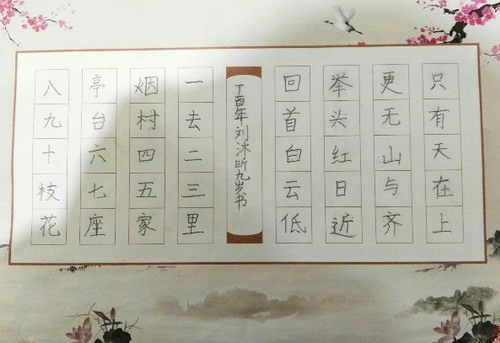 只有天在上
更无山与齐
举头红日近
回首白云低
丁酉年刘沐昕九岁书
一去二三里
烟村四五家
亭台六七座
八九十枝花